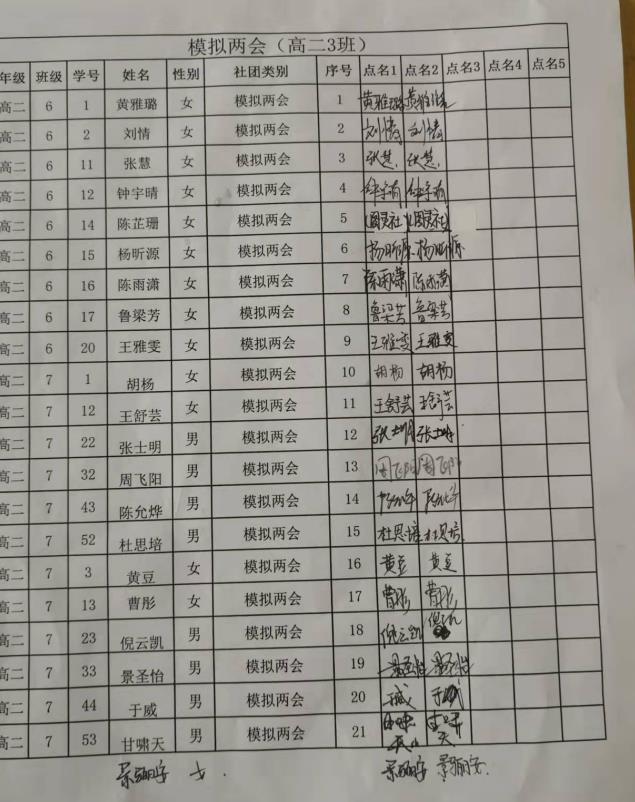 模拟两会（高二3班）
年级 班级 学号 姓名 性别 社团类别 序号 点名1 点名2 点名3 点名4 点名5
高二 6 1 黄雅璐 女 模拟两会 1 黄雅璐 黄雅璐
高二 6 2 刘情 女 模拟两会 2 刘情 刘情
高二 6 11 张慧 女 模拟两会 3 张慧. 张慧.
高二 6 12 钟宇晴 女 模拟两会 4 钟宇晴 钟宇晴
高二 6 14 陈芷珊 女 模拟两会 5
高二 6 15 杨昕源 女 模拟两会 6 杨昕源 杨昕源
高二 6 16 陈雨潇 女 模拟两会 7 陈雨潇 陈雨潇
高二 6 17 鲁梁芳 女 模拟两会 8 鲁梁芳 鲁梁芳
高二 6 20 王雅雯 女 模拟两会 9 王雅雯 王雅雯
高二 7 1 胡杨 女 模拟两会 10 胡杨 胡杨
高二 7 12 王舒芸 女 模拟两会 11 王舒芸 王舒芸
高二 7 22 张士明 男 模拟两会 12 张士明 张士明
高二 7 32 周飞阳 男 模拟两会 13 周飞阳 周飞阳
高二 7 43 陈允烨 男 模拟两会 14
高二 7 52 杜思培 男 模拟两会 15 杜思培 杜思培
高二 7 3 黄豆 女 模拟两会 16 黄豆 黄豆
高二 7 13 曹彤 女 模拟两会 17 曹彤 曹彤
高二 7 23 倪云凯 男 模拟两会 18 倪云凯
高二 7 33 景圣怡 男 模拟两会 19 景圣怡 景圣怡
高二 7 44 于威 男 模拟两会 20 于威 于威
高二 7 53 甘啸天 男 模拟两会 21